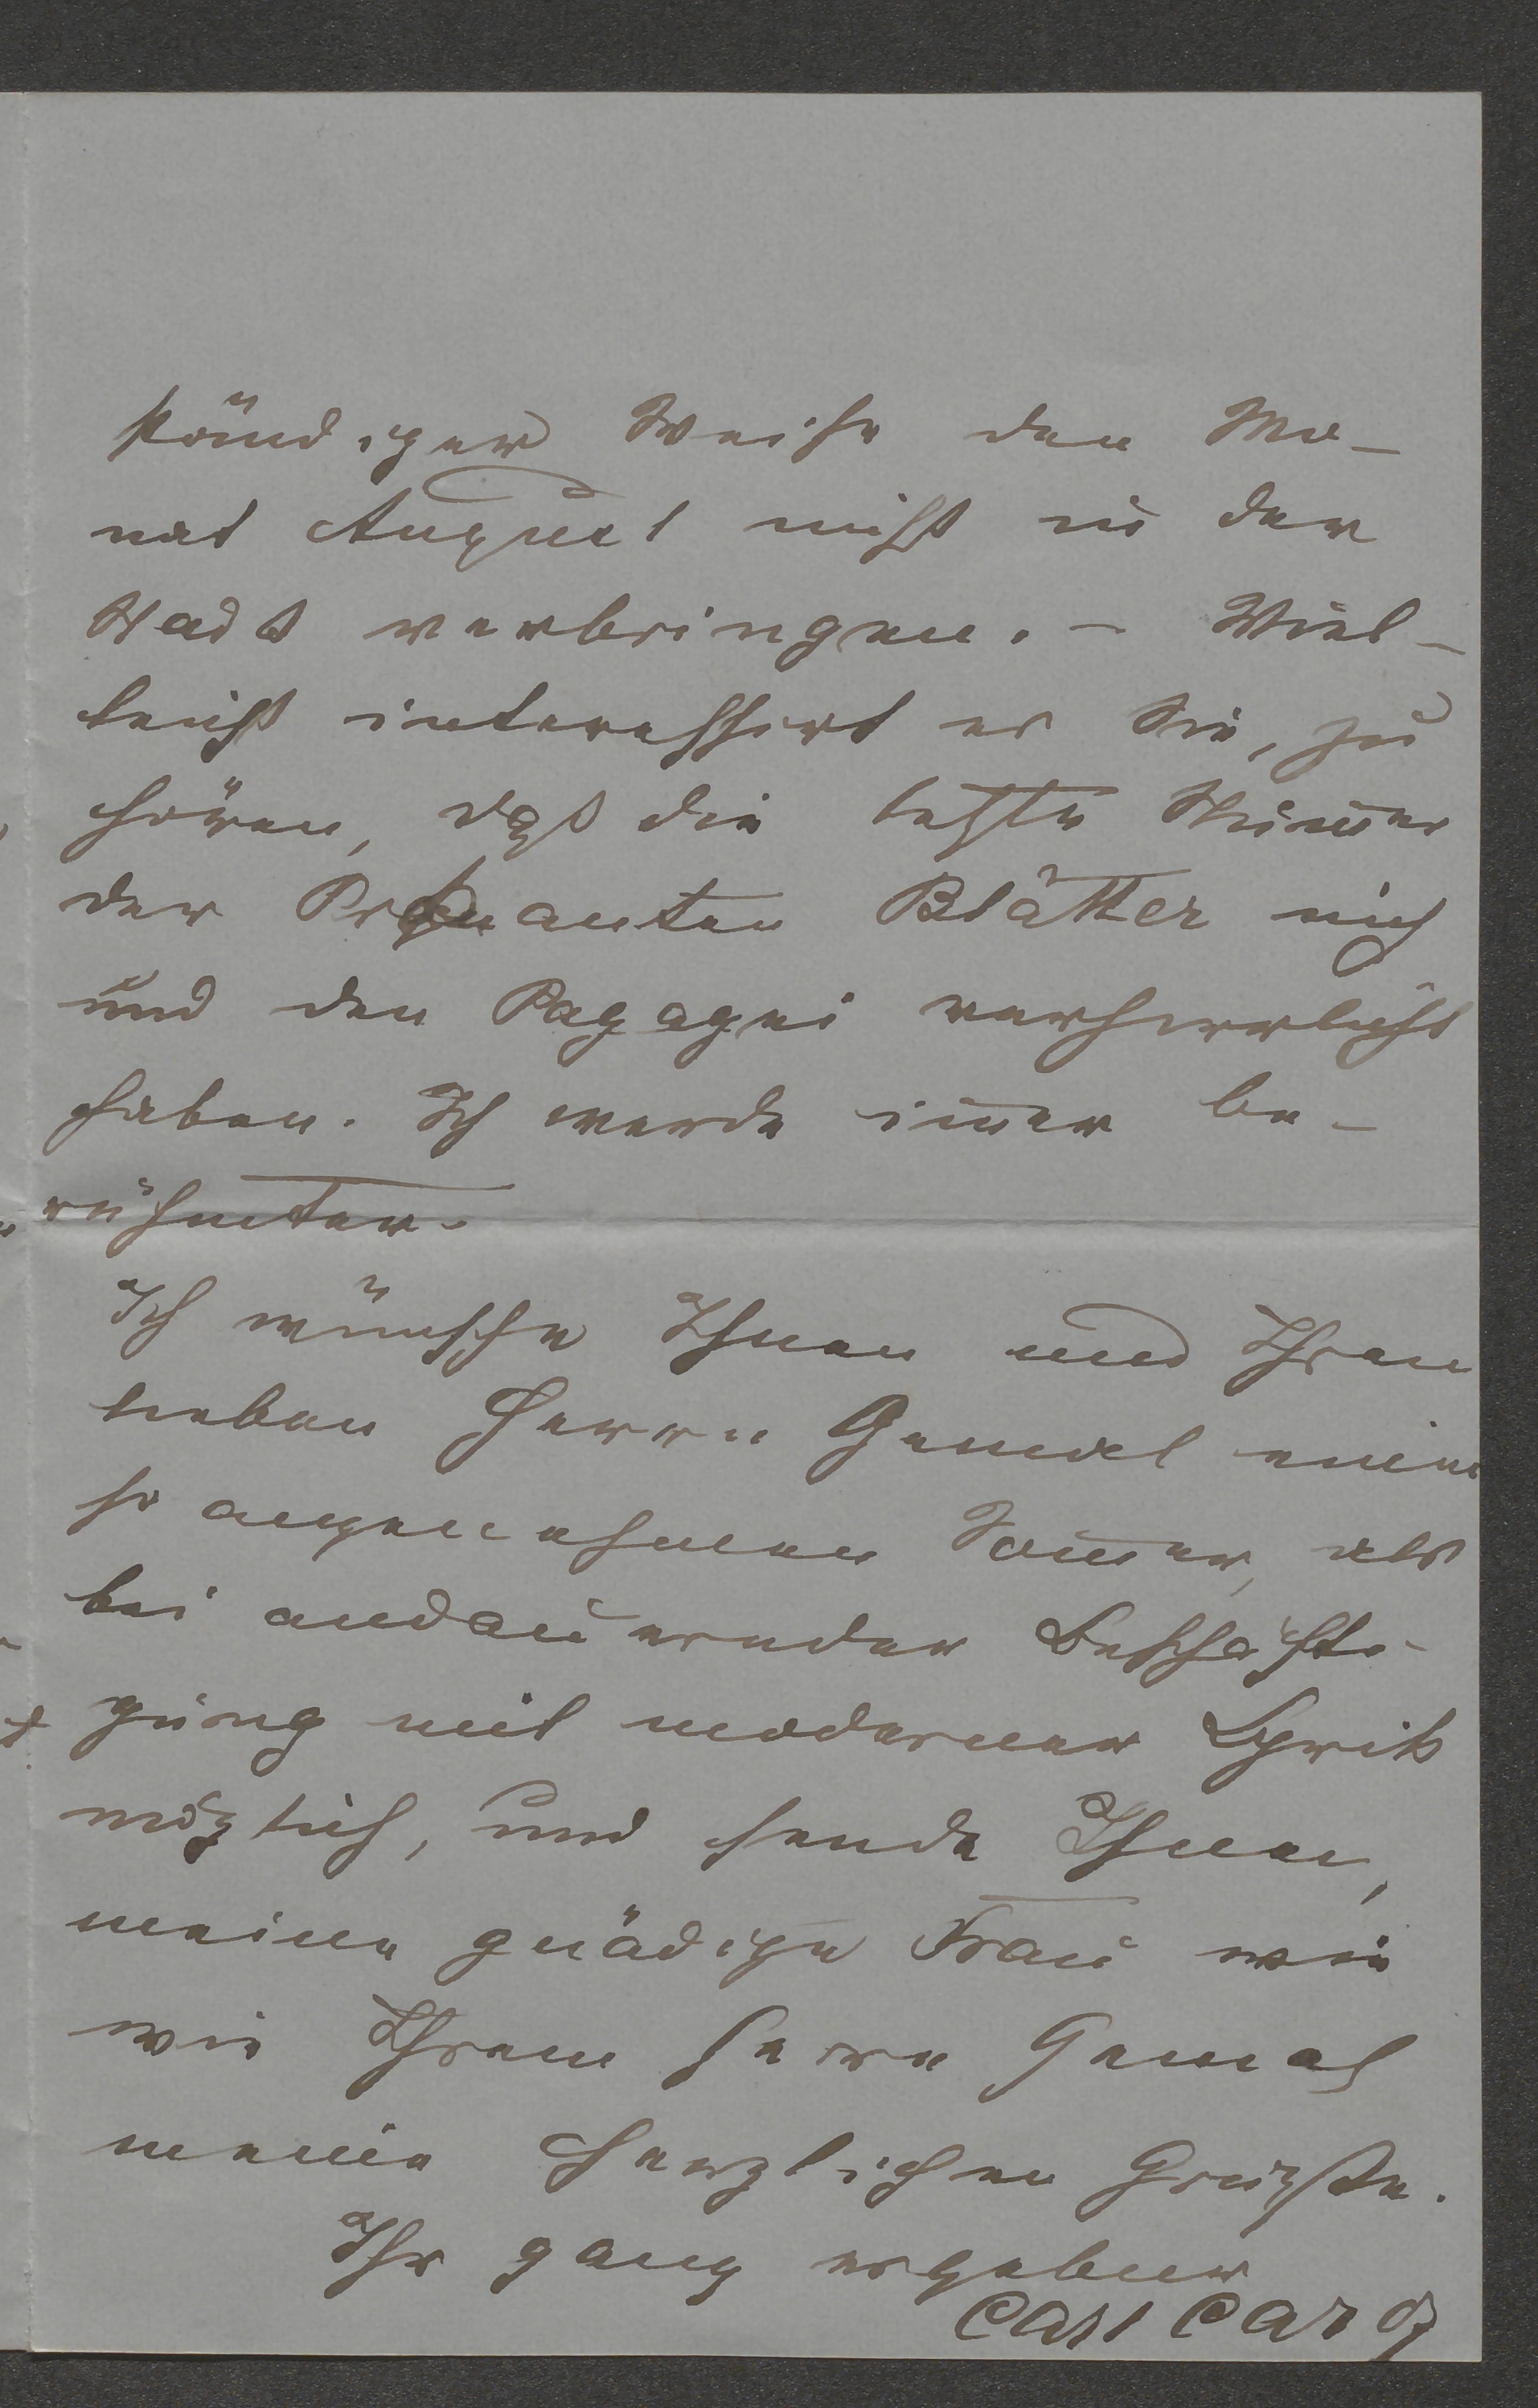 ständiger Weise den Mo-
nat August nicht in der
Stadt verbringen. – Viel-
leicht interessirt es Sie, zu
hören, daß die letzte Num̄er
der Pikanten Blätter mich
und den Papagei verherrlicht
haben. Ich werde im̄er be-
rühmter.
Ich wünsche Ihnen und Ihren
lieben Herrn Gemal einen
so angenehmen Som̄er, als
bei andauernder Beschäfti-
gung mit moderner Lyrik
möglich, und sende Ihnen,
meine gnädige Frau wie
wie Ihrem Herrn Gemal
meine herzlichen Grüße.
Ihr ganz ergebner